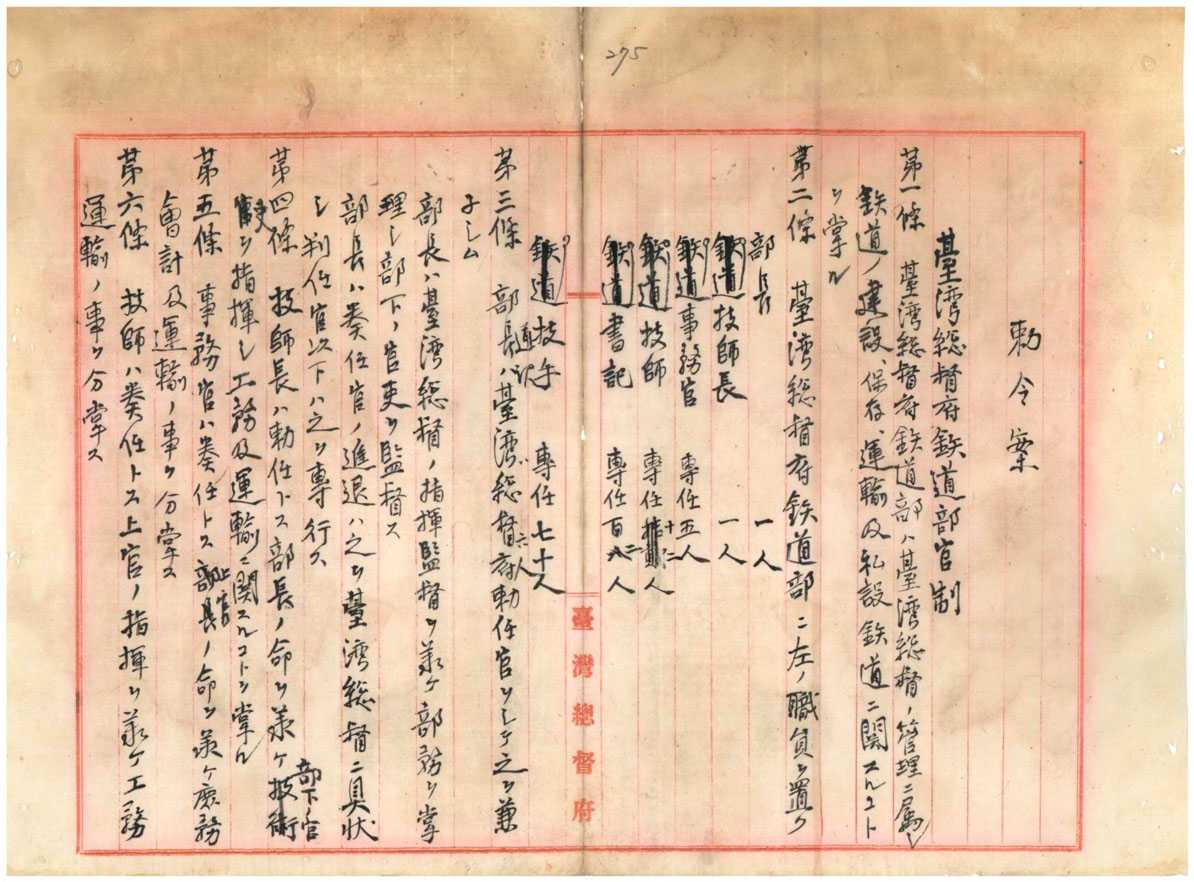 275
勅令案
臺湾総督府鉄道部官制
第一條 臺湾総督府鉄道部ハ臺湾総督ノ管理ニ属シ
鉄道ノ建設、保存、運輸及私設鉄道ニ関スルコト
ヲ掌ル
第二條 臺湾総督府鉄道部ニ左ノ職員ヲ置ク
部長 一人
鉄道技師長 一人
鉄道事務官 専任五人
鉄道技師 専任十二人
鉄道書記 専任百二人
鉄道技手 専任七十人
臺灣總督府
第三條 部長ハ臺湾総督府勅任官ヲシテ之ヲ兼
子シム
部長ハ臺湾総督ノ指揮監督ヲ承ケ部務ヲ掌
理シ部下ノ官吏ヲ監督ス
部長ハ奏任官ノ進退ハ之ヲ臺湾総督ニ具状
シ判任官以下ハ之ヲ専行ス
第四條 技師長ハ勅任トス部長ノ命ヲ承ケ技術
部下ノ官
ヲ指揮シ工務及運輸ニ関スルコトヲ掌ル
第五條 事務官ハ奏任トス上官ノ命ヲ承ケ庶務
會計及運輸ノ事ヲ分掌ス
第六條 技師ハ奏任トス上官ノ指揮ヲ承ケ工務
運輸ノ事ヲ分掌ス